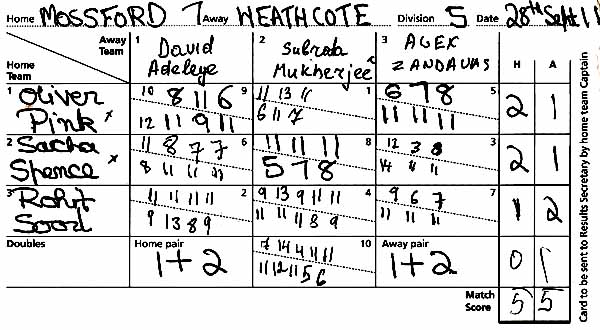 Home MOSSFORD 7 Away HEATHCOTE Division 5 Date 28th Sept 11
Away Team 1 David Adeleye 2 Subrata Mukherjee 3 ALEX ZANDAVAS H A
Home Team
1 Oliver Pink x 10 8 11 6 9 11 13 11 1 6 7 8 5 2 1
12 11 9 11 6 11 7 11 11 11
2 Sacha Spence x 11 8 7 7 6 11 11 11 8 12 3 8 3 2 1
8 11 11 11 5 7 8 14 11 11
3 Rohit Sood 11 11 11 11 2 9 13 9 11 11 4 9 6 7 7 1 2
9 13 8 9 11 11 11 8 9 11 11 11
Doubles Home pair 7 14 4 11 11 10 Away pair 0 1
1+2 11 12 11 5 6 1+2
Match Score 5 5
Card to be sent to Results Secretary by home team Captain